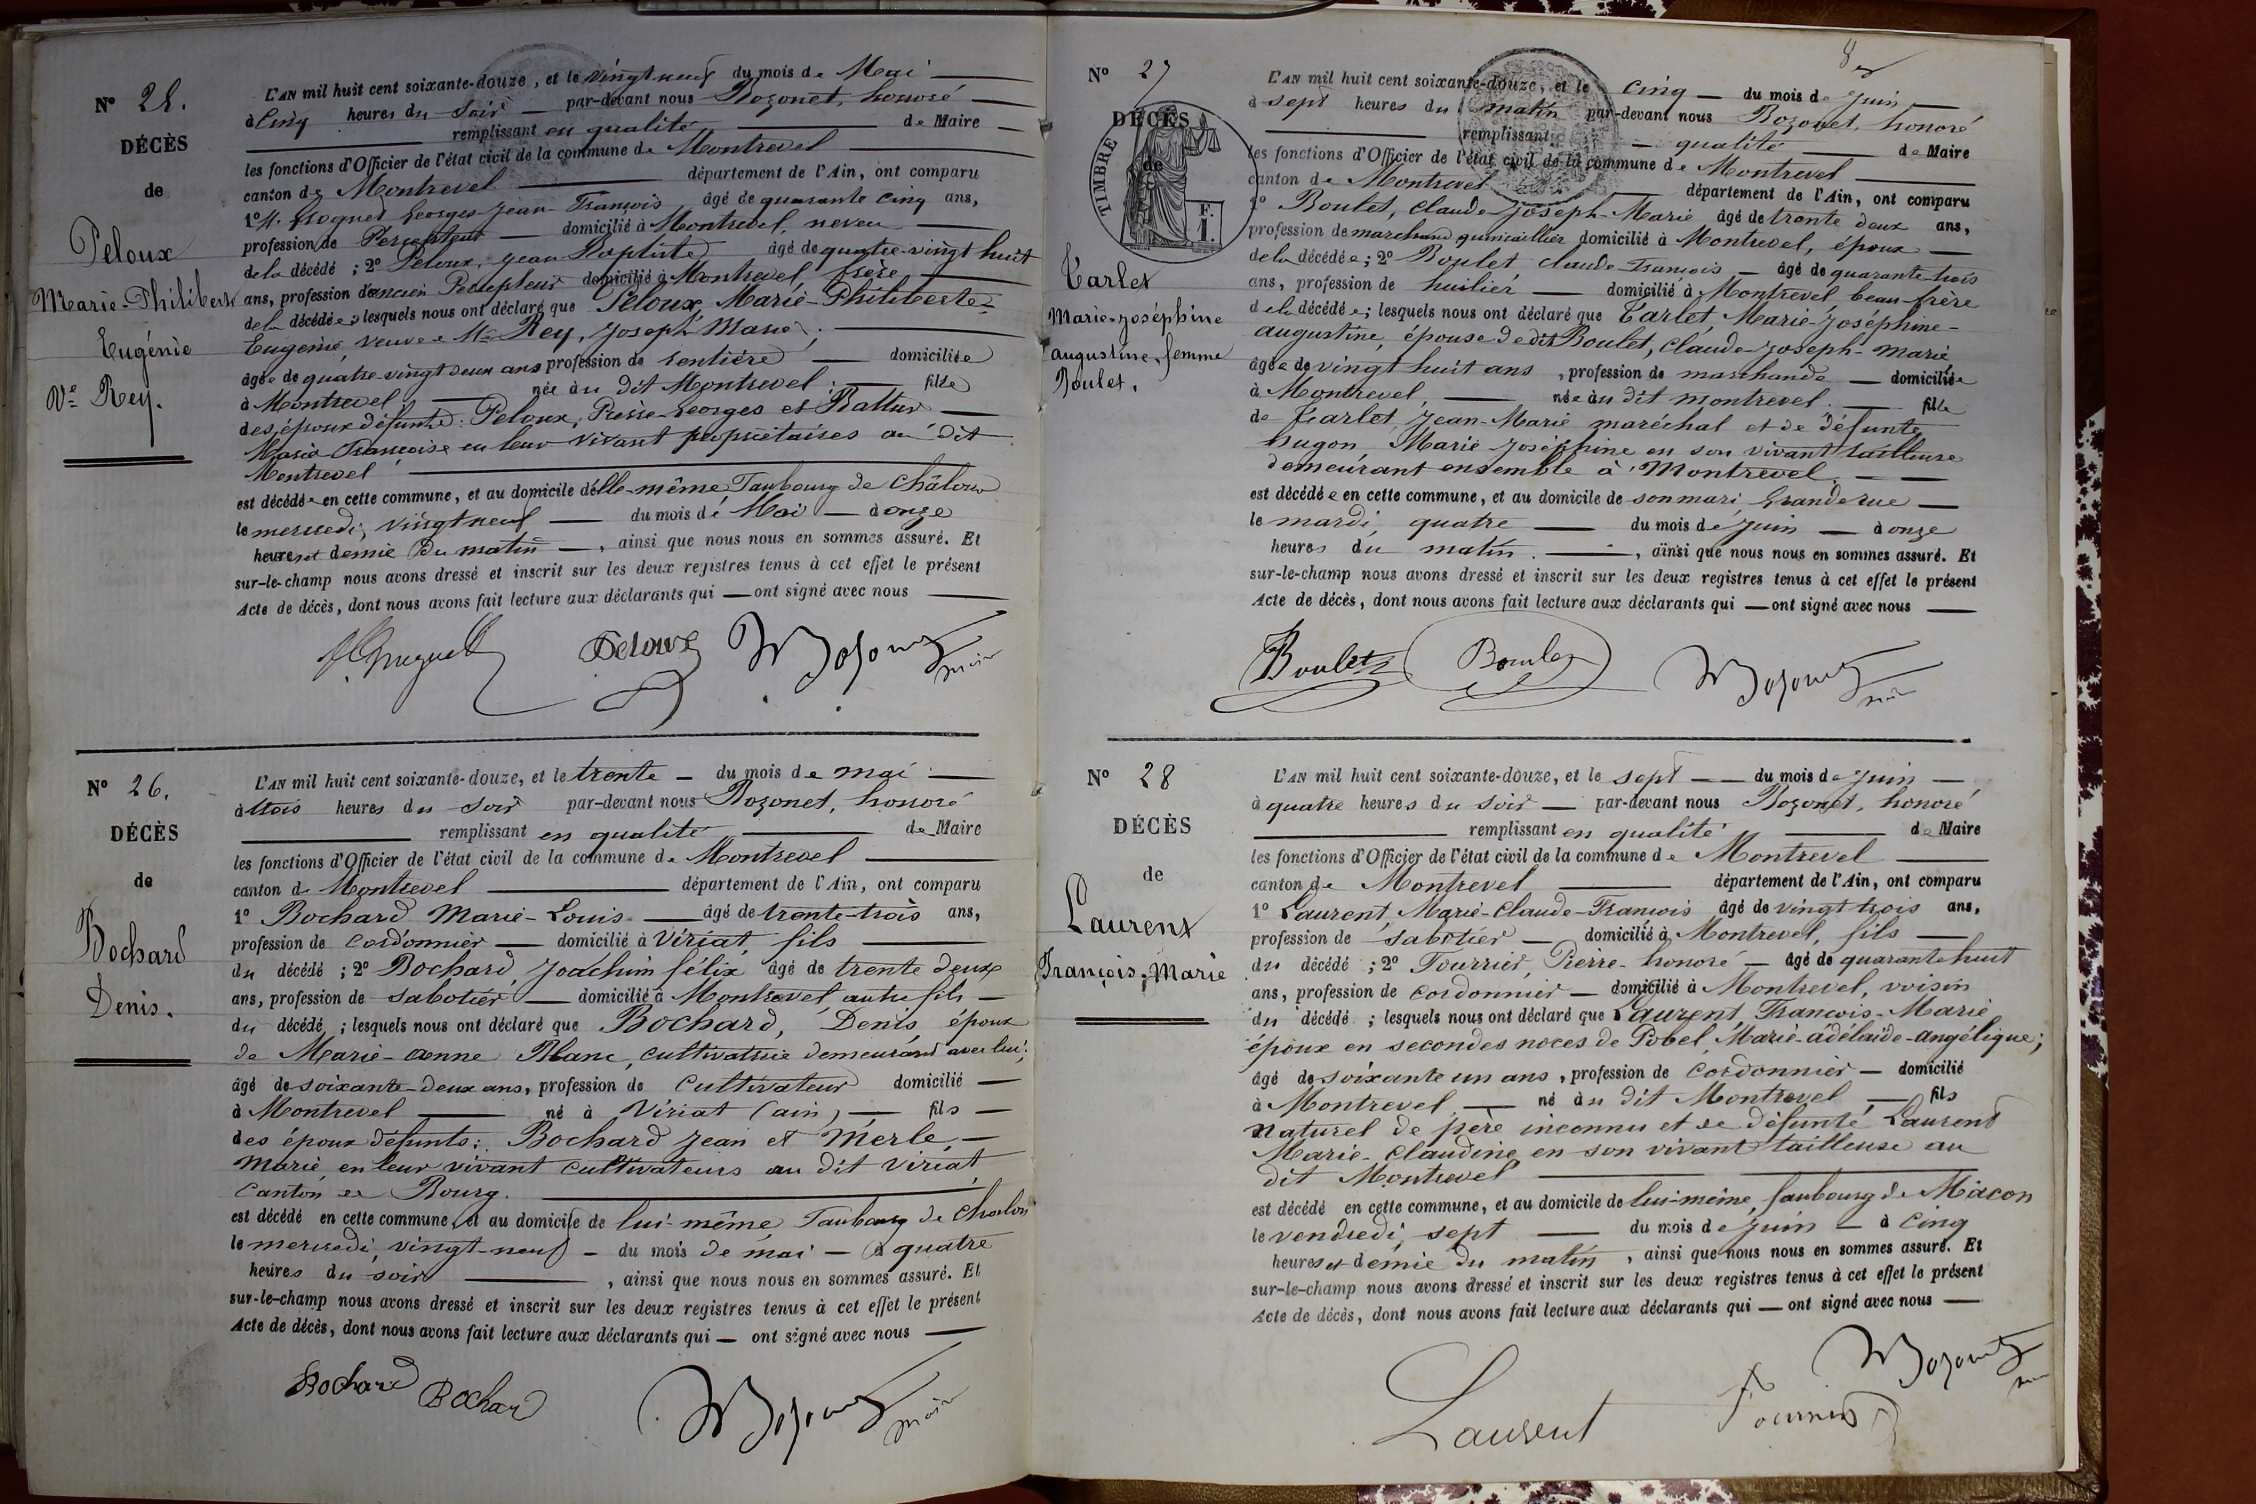 N° 25.
DÉCÈS
de
Peloux
Marie-Philiberte
Eugénie
Vᵉ Rey.
L'AN mil huit cent soixante-douze, et le vingt neuf du mois de Mai
à Cinq heures du Soir par-devant nous Bozonet, honoré
remplissant en qualité de Maire
les fonctions d'Officier de l'état civil de la commune de Montrevel
canton de Montrevel département de l'Ain, ont comparu
1° M. Georges-Jean-François âgé de quarante cinq ans,
profession de Percepteur domicilié à Montrevel, neveu
de la décédé ; 2° Peloux, Jean Baptiste âgé de quatre-vingt huit
ans, profession d'ancien Percepteur domicilié à Montrevel, frère
de la décédée ; lesquels nous ont déclaré que Peloux, Marie-Philiberte-
Eugénie, veuve de Mr Rey, Joseph Marie,
âgée de quatre-vingt deux ans profession de rentière domiciliée
à Montrevel, née au dit Montrevel, fille
des époux défunts : Peloux, Pierre-Georges et Rattur
Marie Françoise en leur vivant propriétaires au dit
Montrevel
est décédée en cette commune, et au domicile d'elle-même Faubourg de Châlon
le mercredi, vingt neuf du mois de Mai à onze
heures et demie du matin, ainsi que nous nous en sommes assuré. Et
sur-le-champ nous avons dressé et inscrit sur les deux registres tenus à cet effet le présent
Acte de décès, dont nous avons fait lecture aux déclarants qui — ont signé avec nous
Peloux Bozonet
maire
N° 26.
DÉCÈS
de
Bochard
Denis.
L'AN mil huit cent soixante-douze, et le trente du mois de mai
à trois heures du soir par-devant nous Bozonet, honoré
remplissant en qualité de Maire
les fonctions d'Officier de l'état civil de la commune de Montrevel
canton de Montrevel département de l'Ain, ont comparu
1° Bochard Marie-Louis âgé de trente-trois ans,
profession de cordonnier domicilié à Viriat, fils
du décédé ; 2° Bochard, Joachim félix âgé de trente deux
ans, profession de sabotier domicilié à Montrevel, autre fils
du décédé ; lesquels nous ont déclaré que Bochard, Denis, époux
de Marie-anne Blanc, cultivatrice demeurant avec lui ;
âgé de soixante-deux ans, profession de cultivateur domicilié
à Montrevel né à Viriat (ain) fils
des époux défunts : Bochard Jean et Merle
Marie en leur vivant cultivateurs au dit Viriat
Canton de Bourg.
est décédé en cette commune, et au domicile de lui-même, Faubourg de Chalon
le mercredi, vingt-neuf du mois de mai à quatre
heures du soir, ainsi que nous nous en sommes assuré. Et
sur-le-champ nous avons dressé et inscrit sur les deux registres tenus à cet effet le présent
Acte de décès, dont nous avons fait lecture aux déclarants qui — ont signé avec nous
Bochard Bochard Bozonet
maire
N° 27
DÉCÈS
de
TIMBRE
Tarlet
Marie-Joséphine
augustine, femme
Boulet.
L'AN mil huit cent soixante-douze, et le cinq du mois de Juin
à sept heures du matin par-devant nous Bozonet, honoré
remplissant qualité de Maire
les fonctions d'Officier de l'état civil de la commune de Montrevel
canton de Montrevel département de l'Ain, ont comparu
1° Boulet, claude-Joseph-Marie âgé de trente deux ans,
profession de marchand quincaillier domicilié à Montrevel, époux
de la décédée ; 2° Boulet claude-françois âgé de quarante-trois
ans, profession de huilier domicilié à Montrevel beau-frère
de la décédée ; lesquels nous ont déclaré que Tarlet, Marie-Joséphine-
augustine, épouse dudit Boulet, Claude-Joseph-Marie
âgée de vingt huit ans, profession de marchande domiciliée
à Montrevel, née au dit montrevel. fille
de Tarlet, Jean-Marie maréchal et de défunte
hugon Marie Joséphine en son vivant tailleuse
demeurant ensemble à Montrevel.
est décédée en cette commune, et au domicile de son mari, Grande rue
le mardi quatre du mois de Juin à onze
heures du matin, ainsi que nous nous en sommes assuré. Et
sur-le-champ nous avons dressé et inscrit sur les deux registres tenus à cet effet le présent
Acte de décès, dont nous avons fait lecture aux déclarants qui — ont signé avec nous
Boulet Boulet Bozonet
N° 28
DÉCÈS
de
Laurent
François-Marie
L'AN mil huit cent soixante-douze, et le sept du mois de Juin
à quatre heures du soir par-devant nous Bozonet, honoré
remplissant en qualité de Maire
les fonctions d'Officier de l'état civil de la commune de Montrevel
canton de Montrevel département de l'Ain, ont comparu
1° Laurent, Marie-Claude-François âgé de vingt trois ans,
profession de sabotier domicilié à Montrevel, fils
du décédé ; 2° Fournier, Pierre-honoré âgé de quarante huit
ans, profession de cordonnier domicilié à Montrevel, voisin
du décédé ; lesquels nous ont déclaré que Laurent, François-Marie
époux en secondes noces de Pobel, Marie-adélaïde-angélique ;
âgé de soixante un ans, profession de cordonnier domicilié
à Montrevel né au dit Montrevel, fils
naturel de père inconnu et de défunte Laurent
Marie-Claudine en son vivant tailleuse au
dit Montrevel
est décédé en cette commune, et au domicile de lui-même, faubourg de Mâcon
le vendredi, sept du mois de Juin à cinq
heures et demie du matin, ainsi que nous nous en sommes assuré. Et
sur-le-champ nous avons dressé et inscrit sur les deux registres tenus à cet effet le présent
Acte de décès, dont nous avons fait lecture aux déclarants qui — ont signé avec nous
Laurent Fournier Bozonet